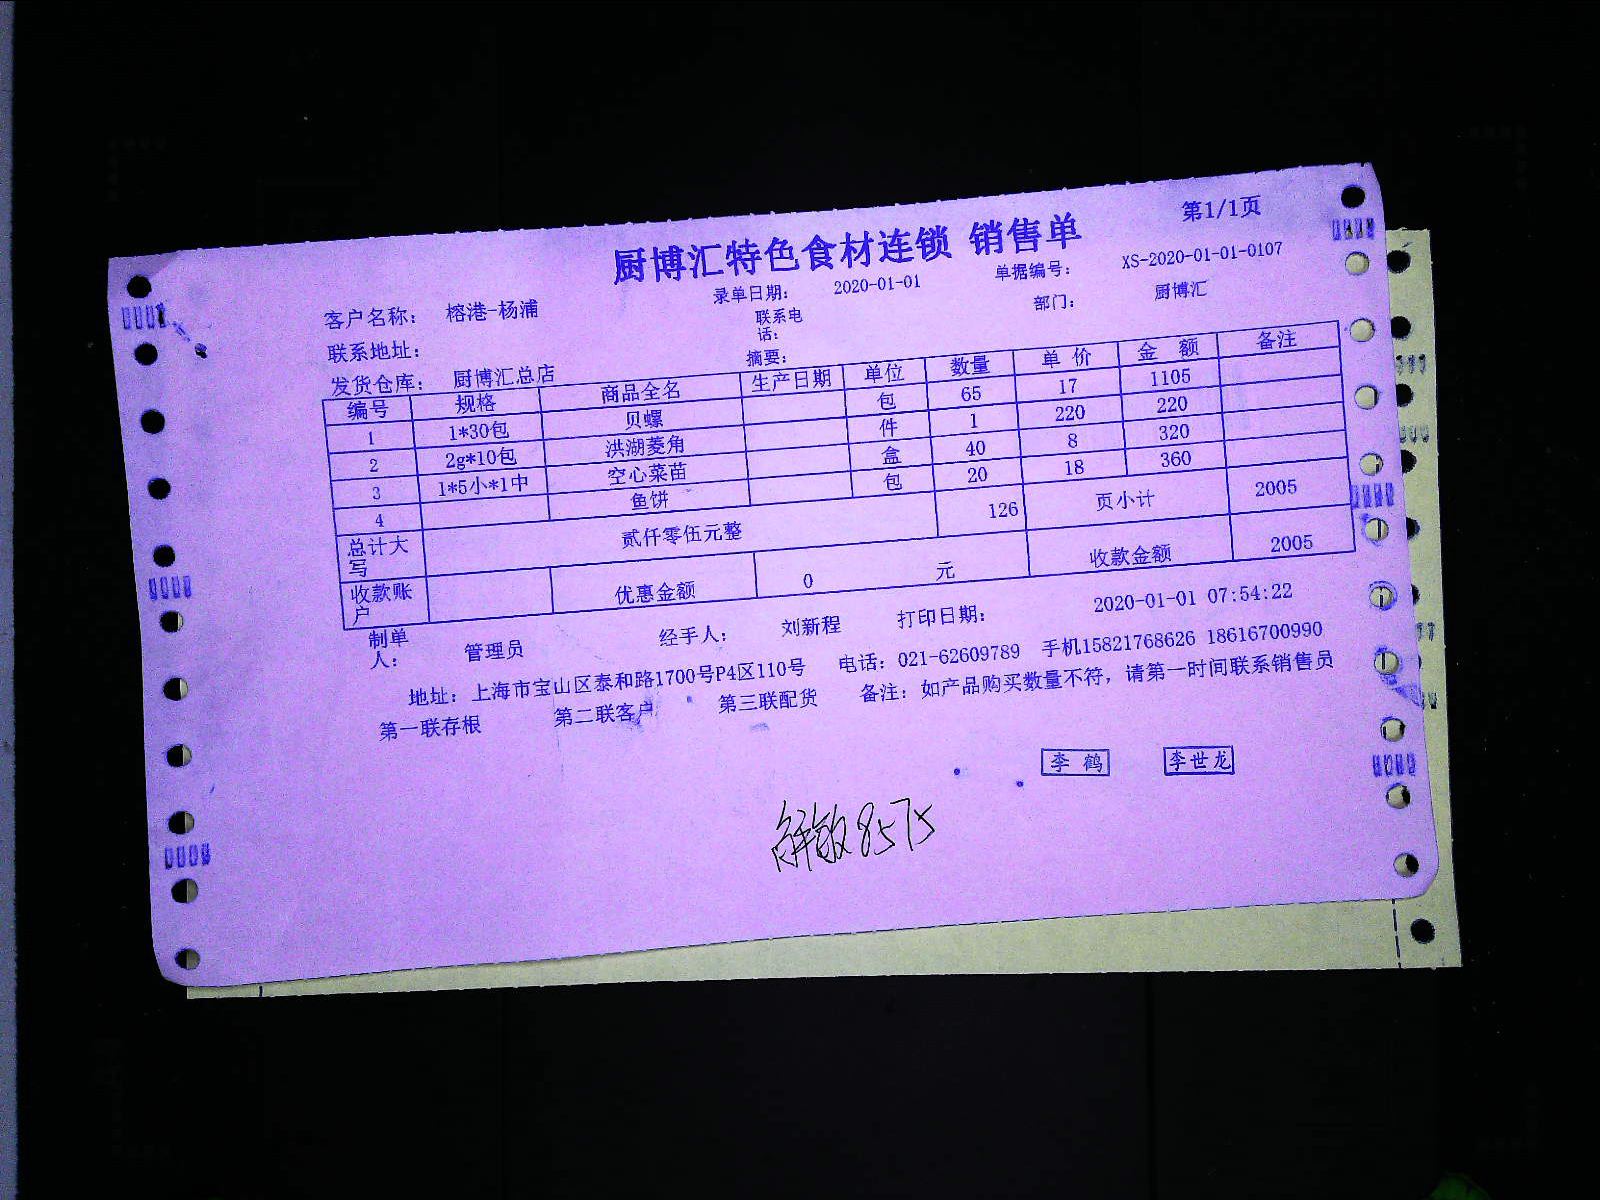 第1/1页
厨博汇特色食材连锁 销售单
客户名称： 榕港-杨浦 录单日期： 2020-01-01 单据编号： XS-2020-01-01-0107
联系地址： 联系电话： 部门： 厨博汇
发货仓库： 厨博汇总店 摘要：
编号 规格 商品全名 生产日期 单位 数量 单 价 金 额 备注
1 1*30包 贝螺 包 65 17 1105
2 2g*10包 洪湖菱角 件 1 220 220
3 1*5小*1中 空心菜苗 盒 40 8 320
4 鱼饼 包 20 18 360
总计大写 贰仟零伍元整 126 页小计 2005
收款账户 优惠金额 0 元 收款金额 2005
制单人： 管理员 经手人： 刘新程 打印日期： 2020-01-01 07:54:22
地址：上海市宝山区泰和路1700号P4区110号 电话：021-62609789 手机15821768626 18616700990
第一联存根 第二联客户 第三联配货 备注：如产品购买数量不符，请第一时间联系销售员
李 鹤 李世龙
8575